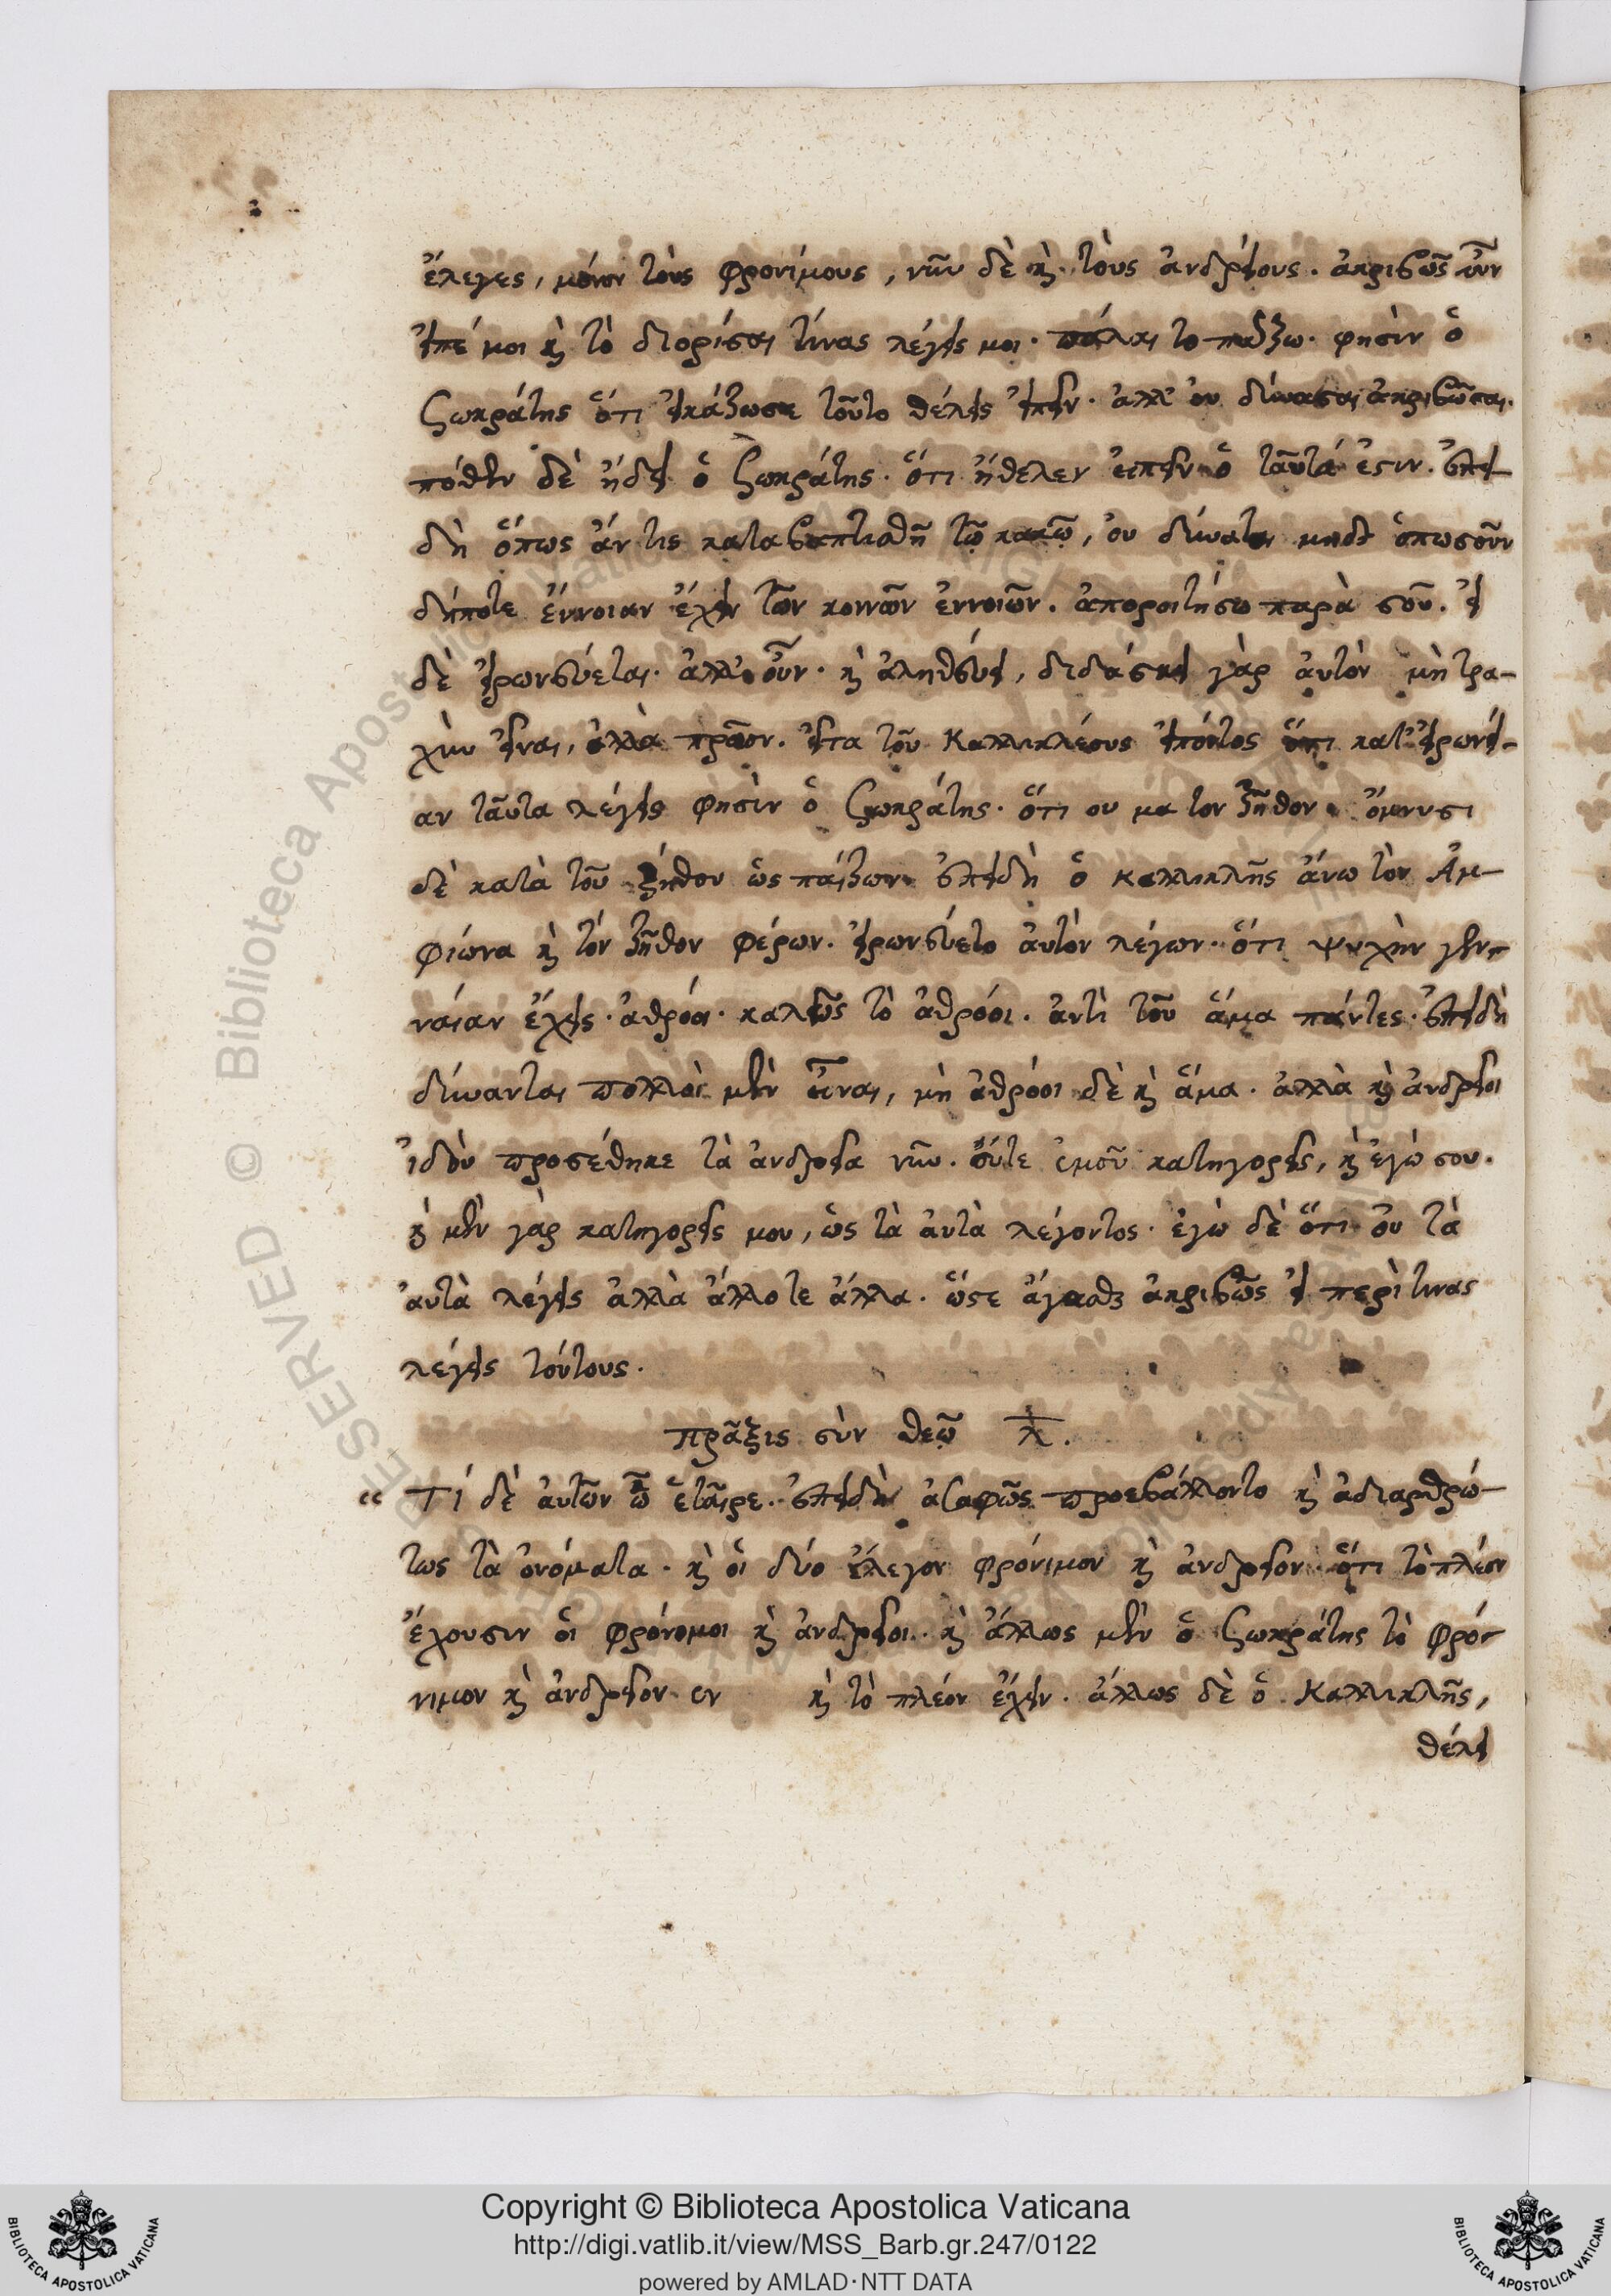 ἔλεγες, μόνον τοὺς φρονίμους, νῦν δὲ καὶ τοὺς ἀνδρείους. ἀκριβῶς οὖν
εἰπέ μοι καὶ τὸ διορίσαι τίνας λέγεις μοι. πάλαι τοπάζω. φησὶν ὁ
Σωκράτης ὅτι εἰκάζω σε τοῦτο θέλεις εἰπεῖν. ἀλλ' οὐ δύνασαι ἀκριβῶσαι.
πόθεν δὲ ᾔδει ὁ Σωκράτης. ὅτι ἤθελεν εἰπεῖν ὁ ταῦτά ἐστιν. ἐπει
δὴ ὅπως ἄν τις καταβαπτισθῇ τῷ κακῷ, οὐ δύναται μηδὲ ὁπωσοῦν
δήποτε ἔννοιαν ἔχειν τῶν κοινῶν ἐννοιῶν. ἀποφοιτήσω παρὰ σοῦ. εἰ
δὲ εἰρωνεύεται. ἀλλ' οὖν. καὶ ἀληθεύει, διδάσκει γὰρ αὐτὸν μὴ τρα-
χὺν εἶναι, ἀλλὰ πρᾶον. εἶτα τοῦ Καλλικλέους εἰπόντος ὅτι κατ' εἰρωνεί-
αν ταῦτα λέγεις φησὶν ὁ Σωκράτης. ὅτι οὐ μα τον Ζῆθον. ὄμνυσι
δὲ κατὰ τοῦ Ζήθου ὡς παίζων. ἐπειδὴ ὁ καλλικλῆς ἄνω τὸν Ἀμ-
φίωνα καὶ τὸν Ζῆθον φέρων. εἰρωνεύετο αὐτὸν λέγων. ὅτι ψυχὴν γεν-
ναίαν ἔχεις. ἀθρόοι. καλῶς τὸ ἀθρόοι. ἀντὶ τοῦ ἅμα πάντες. ἐπειδὴ
δύνανται πολλοὶ μὲν εἶναι, μὴ ἀθρόοι δὲ καὶ ἅμα. ἀλλὰ καὶ ἀνδρεῖοι
ἰδοὺ προσέθηκε τὰ ἀνδρεῖα νῦν. οὔτε ἐμοῦ κατηγορεῖς, καὶ ἐγώ σου.
καὶ μὲν γὰρ κατηγορεῖς μου, ὡς τὰ αὐτὰ λέγοντος. ἐγὼ δὲ ὅτι οὐ τὰ
αὐτὰ λέγεις ἀλλὰ ἄλλοτε ἄλλα. ὥστε ἀκριβῶς εἰ περὶ τινας
λέγεις τούτους.
πρᾶξις σὺν θεῷ λ.
“ Τί δὲ αὐτῶν ὦ ἑταῖρε. ἐπειδὴ ἀσαφῶς προεβάλλοντο καὶ ἀδιαρθρώ-
τως τὰ ὀνόματα. καὶ οἱ δύο ἔλεγον φρόνιμον καὶ ἀνδρεῖον ὅτι τὸ πλέον
ἔχουσιν οἱ φρόνομοι καὶ ἀνδρεῖοι. καὶ ἄλλως μὲν ὁ Σωκράτης τὸ φρό-
νιμον καὶ ἀνδρεῖον εν καὶ τὸ πλέον ἔχειν. ἄλλως δὲ ὁ Καλλικλῆς,
θέλει
Copyright © Biblioteca Apostolica Vaticana
http://digi.vatlib.it/view/MSS_Barb.gr.247/0122
powered by AMLAD·NTT DATA